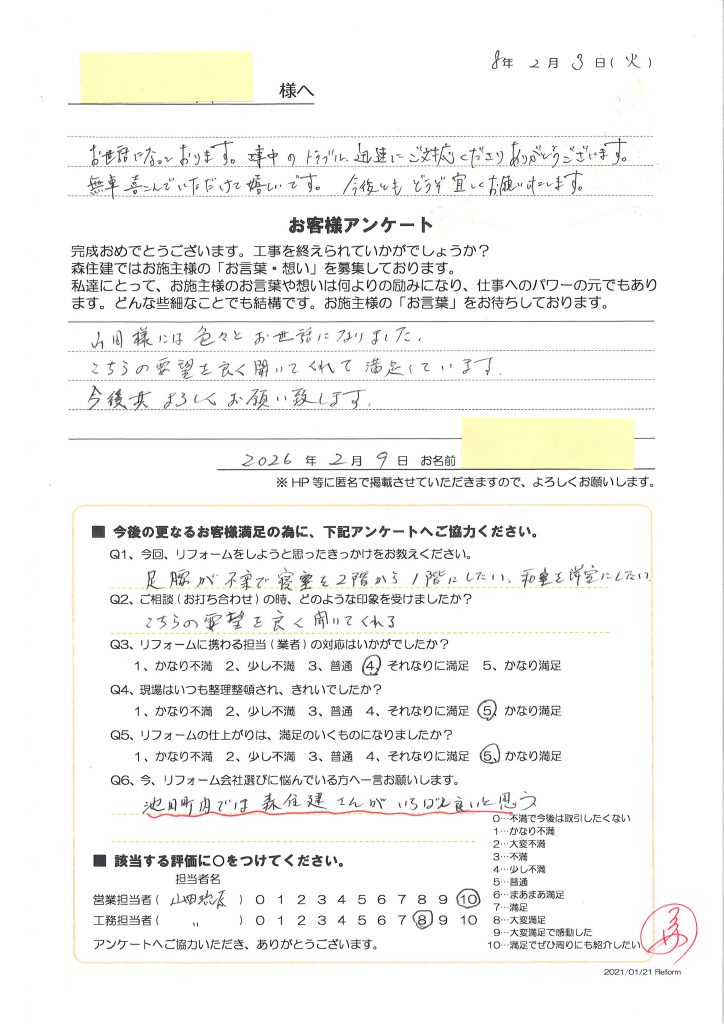 8年 2月 3日(火)
様へ
お世話になっております。工事中のトラブル、迅速にご対応くださりありがとうございます。
無事喜んでいただけて嬉しいです。 今後ともどうぞ宜しくお願いいたします。
お客様アンケート
完成おめでとうございます。工事を終えられていかがでしょうか?
森住建ではお施主様の「お言葉・想い」を募集しております。
私達にとって、お施主様のお言葉や想いは何よりの励みになり、仕事へのパワーの元でもあり
ます。どんな些細なことでも結構です。お施主様の「お言葉」をお待ちしております。
山田様には色々とお世話になりました.
こちらの要望を良く聞いてくれて満足しています.
今後共よろしくお願い致します.
2026年 2月 9日 お名前
※HP等に匿名で掲載させていただきますので、よろしくお願いします。
■ 今後の更なるお客様満足の為に、下記アンケートへご協力ください。
Q1、今回、リフォームをしようと思ったきっかけをお教えください。
足腰が不自で寝室を2階から1階にしたい、和室を洋室にしたい
Q2、ご相談(お打ち合わせ)の時、どのような印象を受けましたか?
こちらの要望を良く聞いてくれる
Q3、リフォームに携わる担当(業者)の対応はいかがでしたか?
1、かなり不満 2、少し不満 3、普通 4、それなりに満足 5、かなり満足
Q4、現場はいつも整理整頓され、きれいでしたか?
1、かなり不満 2、少し不満 3、普通 4、それなりに満足 5、かなり満足
Q5、リフォームの仕上がりは、満足のいくものになりましたか?
1、かなり不満 2、少し不満 3、普通 4、それなりに満足 5、かなり満足
Q6、今、リフォーム会社選びに悩んでいる方へ一言お願いします。
池田町内では森住建さんがいちばん良いと思う
0…不満で今後は取引したくない
1…かなり不満
2…大変不満
3…不満
4…少し不満
5…普通
6…まあまあ満足
7…満足
8…大変満足
9…大変満足で感動した
10…満足でぜひ周りにも紹介したい
■ 該当する評価に○をつけてください。
担当者名
営業担当者( 山田 ) 0 1 2 3 4 5 6 7 8 9 10
工務担当者( 〃 ) 0 1 2 3 4 5 6 7 8 9 10
アンケートへご協力いただき、ありがとうございます。
2021/01/21 Reform